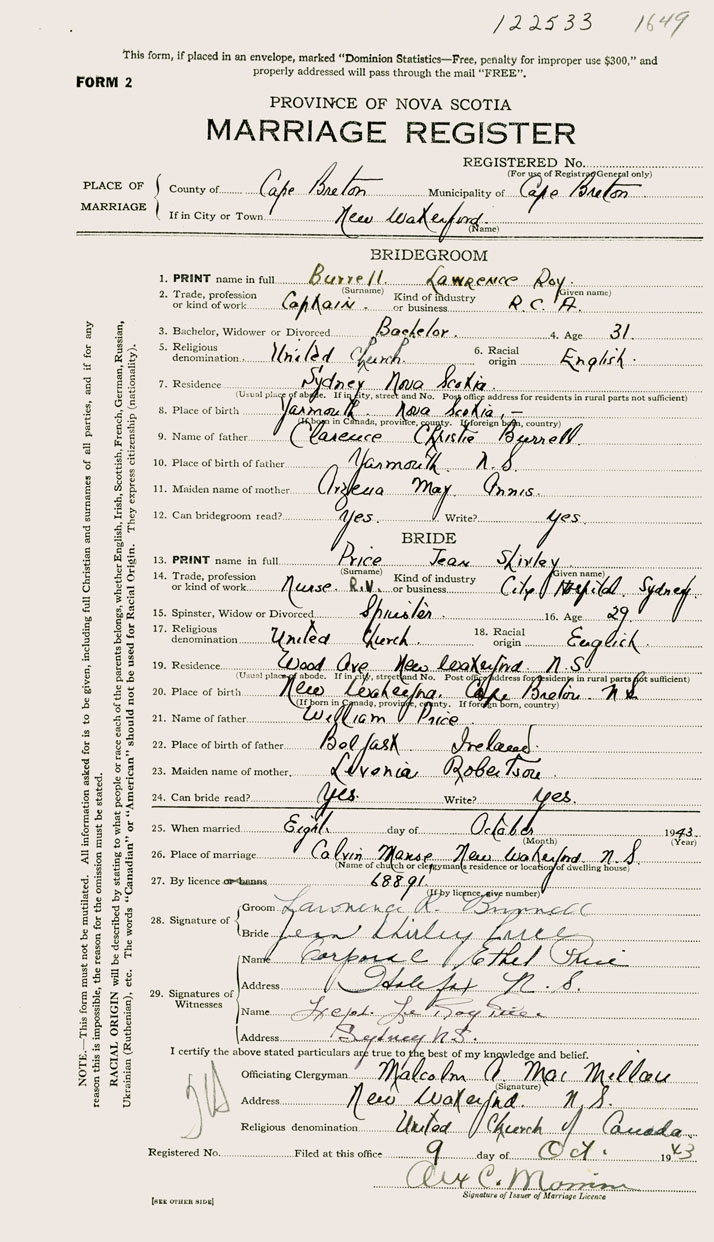 122533 1649
This form, if placed in an envelope, marked "Dominion Statistics—Free, penalty for improper use $300," and
properly addressed will pass through the mail "FREE".
FORM 2
PROVINCE OF NOVA SCOTIA
MARRIAGE REGISTER
REGISTERED No.
(For use of Registrar General only)
PLACE OF MARRIAGE
County of Cape Breton Municipality of Cape Breton
If in City or Town New Waterford
(Name)
BRIDEGROOM
1. PRINT name in full Burrell Lawrence Roy
(Surname) (Given name)
2. Trade, profession or kind of work Captain. Kind of industry or business R.C.A.
3. Bachelor, Widower or Divorced Bachelor. 4. Age 31.
5. Religious denomination United Church. 6. Racial origin English.
7. Residence Sydney Nova Scotia.
(Usual place of abode. If in city, street and No. Post office address for residents in rural parts not sufficient)
8. Place of birth Yarmouth Nova Scotia, —
(If born in Canada, province, county. If foreign born, country)
9. Name of father Clarence Christie Burrell.
10. Place of birth of father Yarmouth N.S.
11. Maiden name of mother May Annis.
12. Can bridegroom read? Yes. Write? yes.
BRIDE
13. PRINT name in full Price Jean Shirley
(Surname) (Given name)
14. Trade, profession or kind of work Nurse R.N. Kind of industry or business City Hospital Sydney.
15. Spinster, Widow or Divorced Spinster. 16. Age 29
17. Religious denomination United Church. 18. Racial origin English.
19. Residence Wood Ave New Waterford N.S.
(Usual place of abode. If in city, street and No. Post office address for residents in rural parts not sufficient)
20. Place of birth New Waterford. Cape Breton N.S
(If born in Canada, province, county. If foreign born, country)
21. Name of father William Price
22. Place of birth of father Belfast Ireland.
23. Maiden name of mother. Levenia Robertson
24. Can bride read? Yes. Write? Yes.
25. When married Eight day of October 1943.
(Month) (Year)
26. Place of marriage Calvin Manse New Waterford N.S.
(Name of church or clergyman's residence or location of dwelling house)
27. By licence or banns 68891.
(If by licence, give number)
28. Signature of
Groom Lawrence R. Burrell
Bride Jean Shirley Price
29. Signatures of Witnesses
Name Corporal Ethel Price
Address Halifax N.S.
Name
Address Sydney N.S.
I certify the above stated particulars are true to the best of my knowledge and belief.
Officiating Clergyman Malcolm A. Mac Millan
(Signature)
Address New Waterford N.S.
Religious denomination United Church of Canada.
Registered No. Filed at this office 9 day of Oct. 1943
Alex C.
Signature of Issuer of Marriage Licence
[SEE OTHER SIDE]
NOTE.—This form must not be mutilated. All information asked for is to be given, including full Christian and surnames of all parties, and if for any
reason this is impossible, the reason for the omission must be stated.
RACIAL ORIGIN will be described by stating to what people or race each of the parents belongs, whether English, Irish, Scottish, French, German, Russian,
Ukrainian (Ruthenian), etc. The words "Canadian" or "American" should not be used for Racial Origin. They express citizenship (nationality).